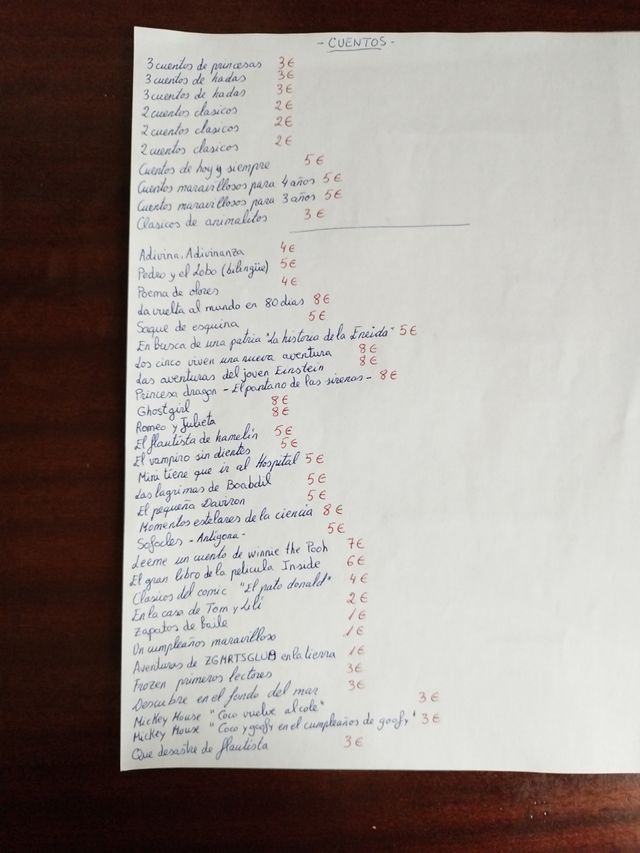 - CUENTOS -
3 cuentos de princesas 3€
3 cuentos de hadas 3€
3 cuentos de hadas 3€
2 cuentos clasicos 2€
2 cuentos clasicos 2€
2 cuentos clasicos 2€
Cuentos de hoy y siempre 5€
Cuentos maravillosos para 4 años 5€
Cuentos maravillosos para 3 años 5€
Clasicos de animalitos 3€
Adivina, Adivinanza 4€
Pedro y el Lobo (bilingüe) 5€
Poema de olores 4€
La vuelta al mundo en 80 dias 8€
Saque de esquina 5€
En busca de una patria "La historia de la Eneida" 5€
Los cinco viven una nueva aventura 8€
Las aventuras del joven Einstein 8€
Princesa dragon - El pantano de las sirenas - 8€
Ghostgirl 8€
Romeo y Julieta 8€
El flautista de hamelin 5€
El vampiro sin dientes 5€
Mini tiene que ir al Hospital 5€
Las lagrimas de Boabdil 5€
El pequeña Daviron 5€
Momentos estelares de la ciencia 8€
Sofocles - Antigona - 5€
Leeme un cuento de winnie the Pooh 7€
El gran libro de la pelicula Inside 6€
Clasicos del comic "El pato donald" 4€
En la casa de Tom y Lili 2€
Zapatos de baile 1€
Un cumpleaños maravilloso 1€
Aventuras de ZGMRTSGLUB en la tierra 1€
Frozen primeros lectores 3€
Descubre en el fondo del mar 3€
Mickey Mouse "Coco vuelve al cole" 3€
Mickey Mouse "Coco y goofy en el cumpleaños de goofy" 3€
Que desastre de flautista 3€